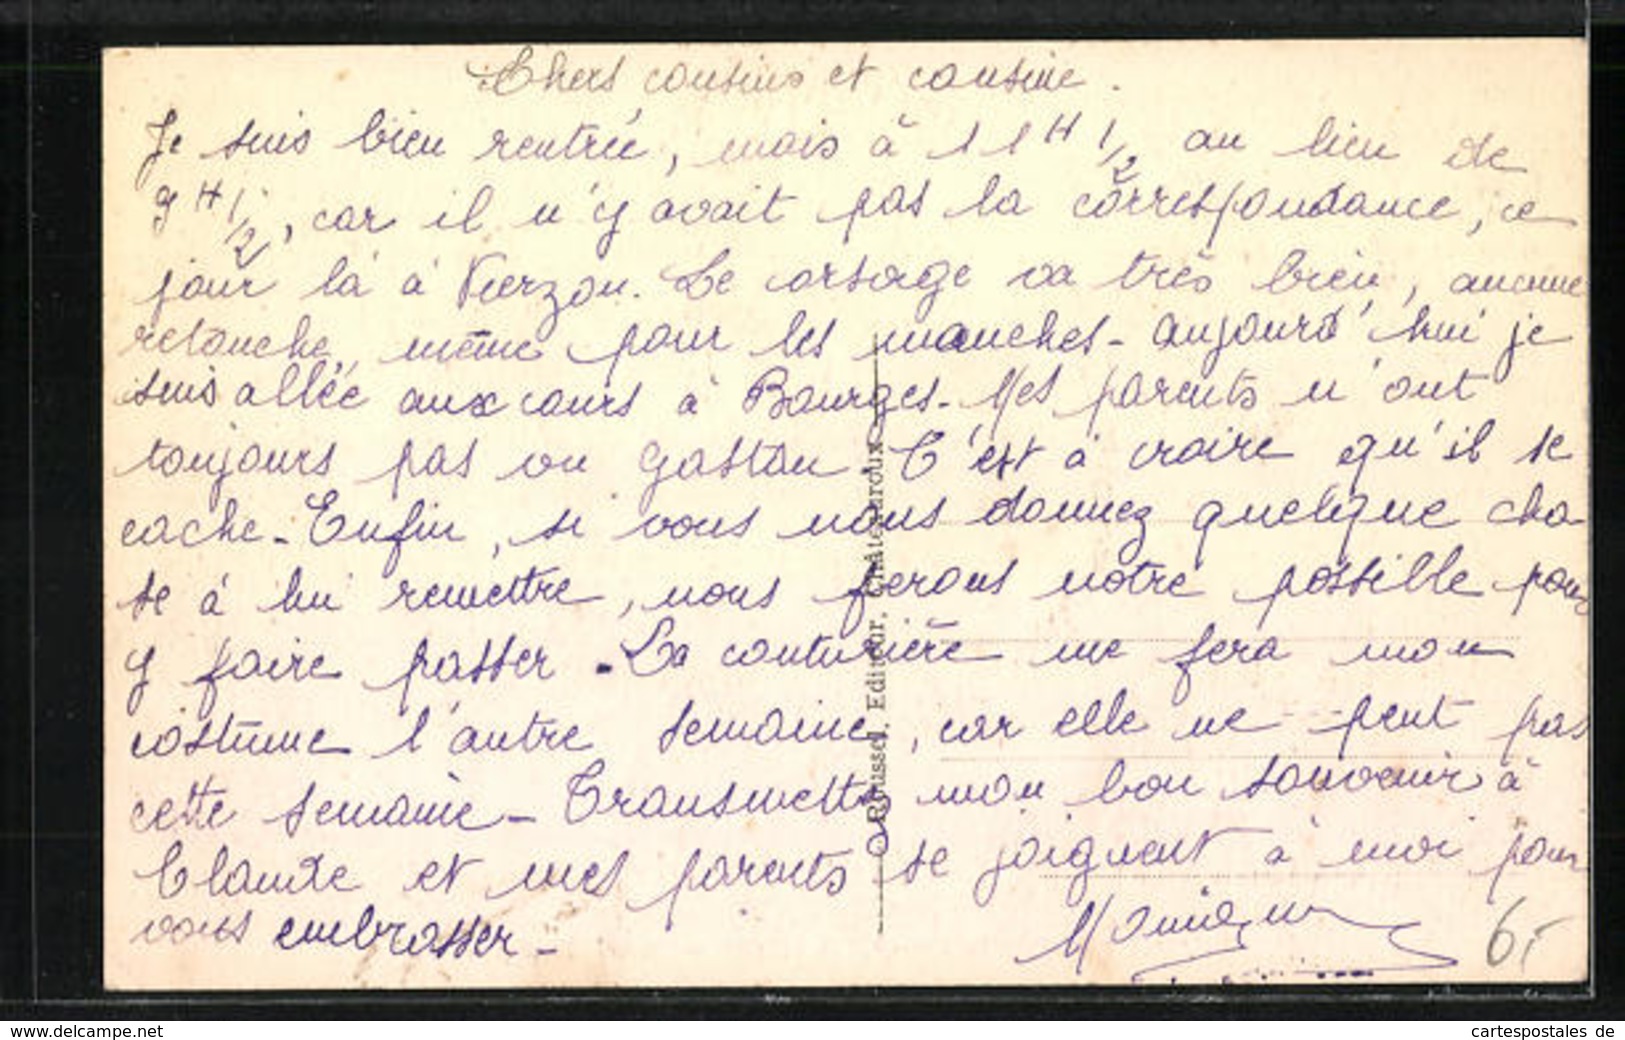 Chers cousins et cousine.
Je suis bien rentrée, mais à 11 H 1/2 au lieu de
9 H 1/2, car il n'y avait pas la correspondance, ce
jour là à Vierzon. Le corsage va très bien, aucune
retouche, même pour les manches - aujourd'hui je
suis allée aux cours à Bourges - Mes parents n'ont
toujours pas vu Gaston C'est à croire qu'il se
cache - Enfin, si vous nous donnez quelque cho-
se à lui remettre, nous ferons notre possible pour
y faire passer - La couturière me fera mon
costume l'autre semaine, car elle ne peut pas
cette semaine - Transmettez mon bon souvenir à
Claude et mes parents se joignent à moi pour
vous embrasser -
6,-
Roussel, Editeur, Châteauroux
www.delcampe.net
cartespostales de